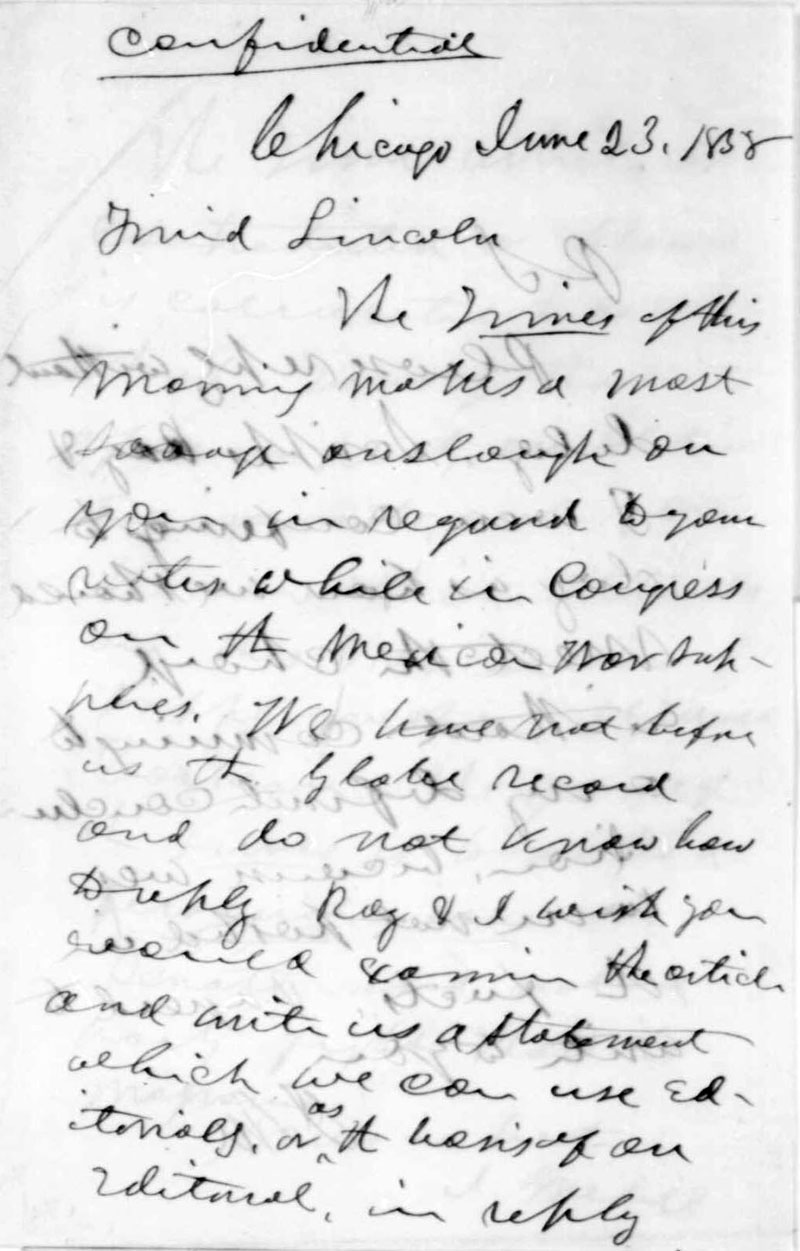 Confidential
Chicago June 23. 1858
Friend Lincoln
The Times of this
morning makes a most
savage onslaught on
you in regard to your
votes while in Congress
on the Mexican War sup-
plies. We have not before
us the Globe record
and do not know how
to reply Ray & I wish you
would examine the article
and write us a statement
which we can use ed-
itorialy. or as the basis of an
Editorial, in reply